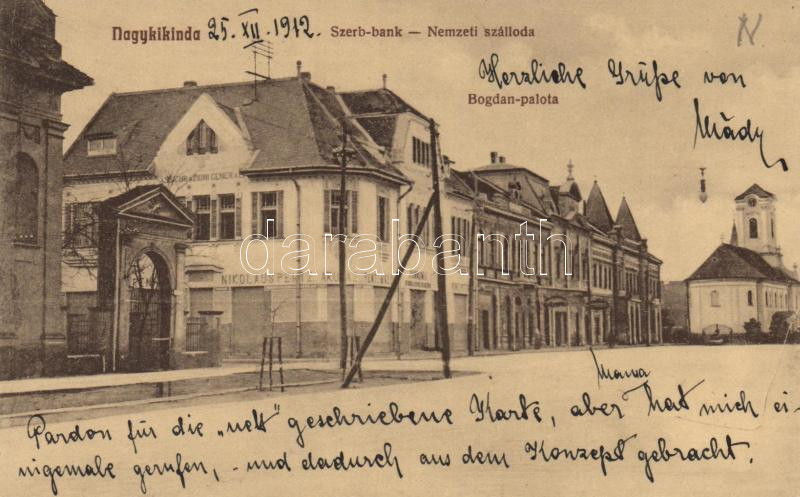 Nagykikinda 25. XII. 1912. Szerb-bank — Nemzeti szálloda
Herzliche Grüße von
Bogdan-palota
Mády
darabanth
NIKOLAUS
Mama
Pardon für die „nett" geschriebene Karte, aber hat mich ei-
nigemale gerufen, - und dadurch aus dem Konzept gebracht.